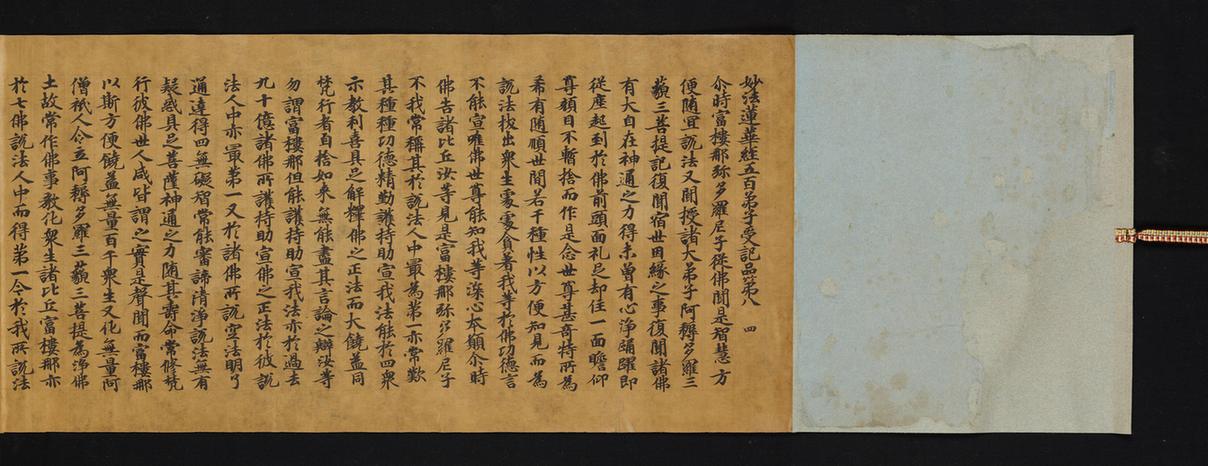 妙法蓮華經五百弟子受記品第八 四
尒時富樓那弥多羅尼子從佛聞是智慧方
便隨冝說法又聞授諸大弟子阿耨多羅三
藐三菩提記復聞宿世因緣之事復聞諸佛
有大自在神通之力得未曾有心淨踊躍即
從座起到於佛前頭面礼足却住一面瞻仰
尊顏目不暫捨而作是念世尊甚奇特所為
希有隨順世間若干種性以方便知見而為
說法拔出衆生處處貪著我等於佛功德言
不能宣唯佛世尊能知我等深心本願尒時
佛告諸比丘汝等見是富樓那弥多羅尼子
不我常稱其於說法人中㝡為第一亦常歎
其種種功德精勤護持助宣我法能於四衆
示教利喜具足解釋佛之正法而大饒益同
梵行者自捨如來無能盡其言論之辯汝等
勿謂富樓那但能護持助宣我法亦於過去
九十億諸佛所護持助宣佛之正法於彼說
法人中亦㝡第一又於諸佛所說空法明了
通達得四無礙智常能審諦清淨說法無有
疑惑具足菩薩神通之力隨其壽命常修梵
行彼佛世人咸皆謂之實是聲聞而富樓那
以斯方便饒益無量百千衆生又化無量阿
僧祇人令立阿耨多羅三藐三菩提為淨佛
土故常作佛事教化衆生諸比丘富樓那亦
於七佛說法人中而得第一今於我所說法